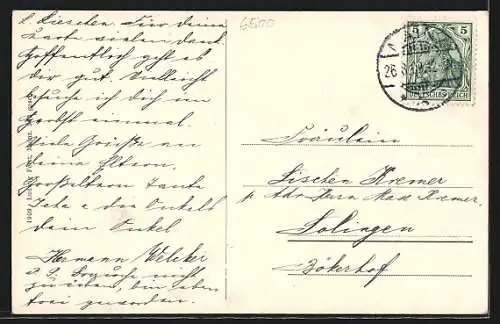 L. Lieschen. Für deine
Karte vielen Dank.
Hoffentlich geht es
dir gut. Vielleicht
besuche ich dich im
Herbst einmal.
Viele Grüße an
deine Eltern,
Großeltern Tante
u. den Onkels
dein Onkel
Hermann Welcker
u. L. nicht
bin eben
frei geworden.
1909
6500
5 5
DEUTSCHES REICH
26.
Fräulein
Lischen Kremer
p. Adr. Herrn Max Kremer
Solingen
Bökerhof